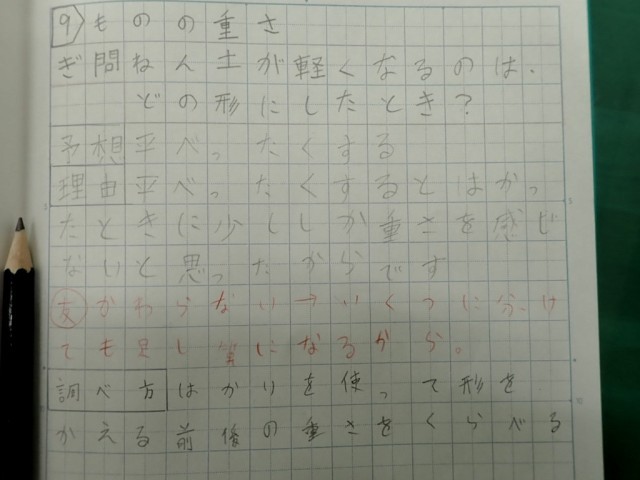 9 ものの重さ
ぎ問ねん土が軽くなるのは、
どの形にしたとき?
予想平べったくする
理由平べったくするとはかっ
たときに少ししか重さを感じ
ないと思ったからです
友かわらない→いくつに分け
ても足し算になるから。
調べ方はかりを使って形を
かえる前後の重さをくらべる